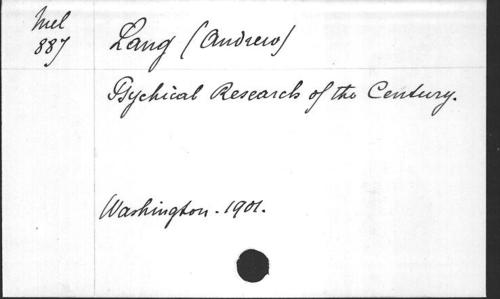 Mel
887
Lang (Andrew)
Psychical Research of the Century.
Washington - 1901.